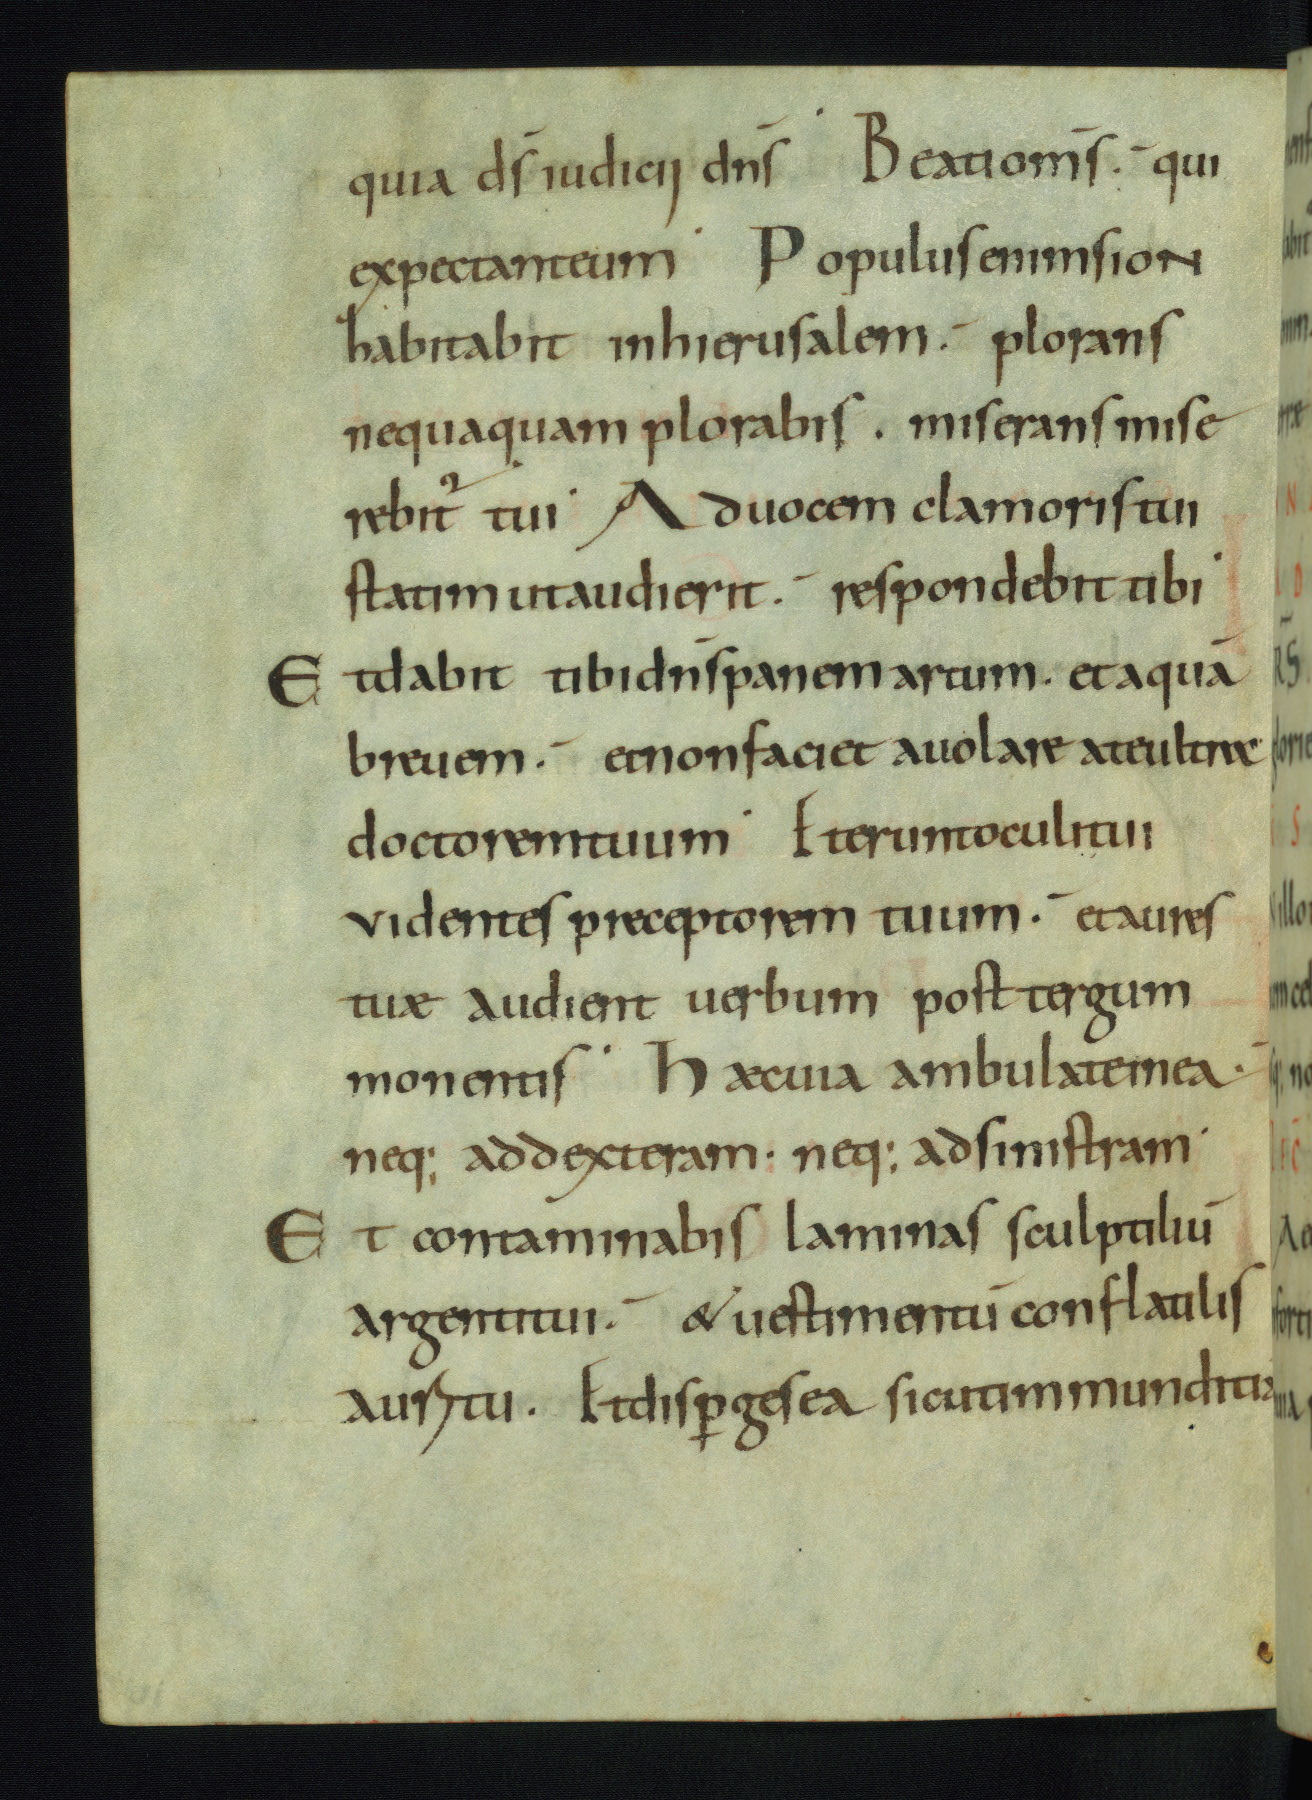 quia ds̄ iudicij dn̄s Beati om̄s. qui
expectant eum Populus enim sion
habitabit in hierusalem. plorans
nequaquam plorabis. miserans mise
rebit᷑ tui Ad uocem clamoris tui
statim ut audierit. respondebit tibi
Et dabit tibi dn̄s panem artum. et aquā
breuem. et non faciet auolare a te ultrae
doctorem tuum Et erunt oculi tui
videntes preceptorem tuum. et aures
tuae audient uerbum post tergum
monentis Haec uia ambulate in ea.
neq; ad dexteram. neq; ad sinistram
Et contaminabis laminas sculptiliū
argenti tui. & uestimentū conflatilis
auri tu. Et disꝑges ea sicut immunditia